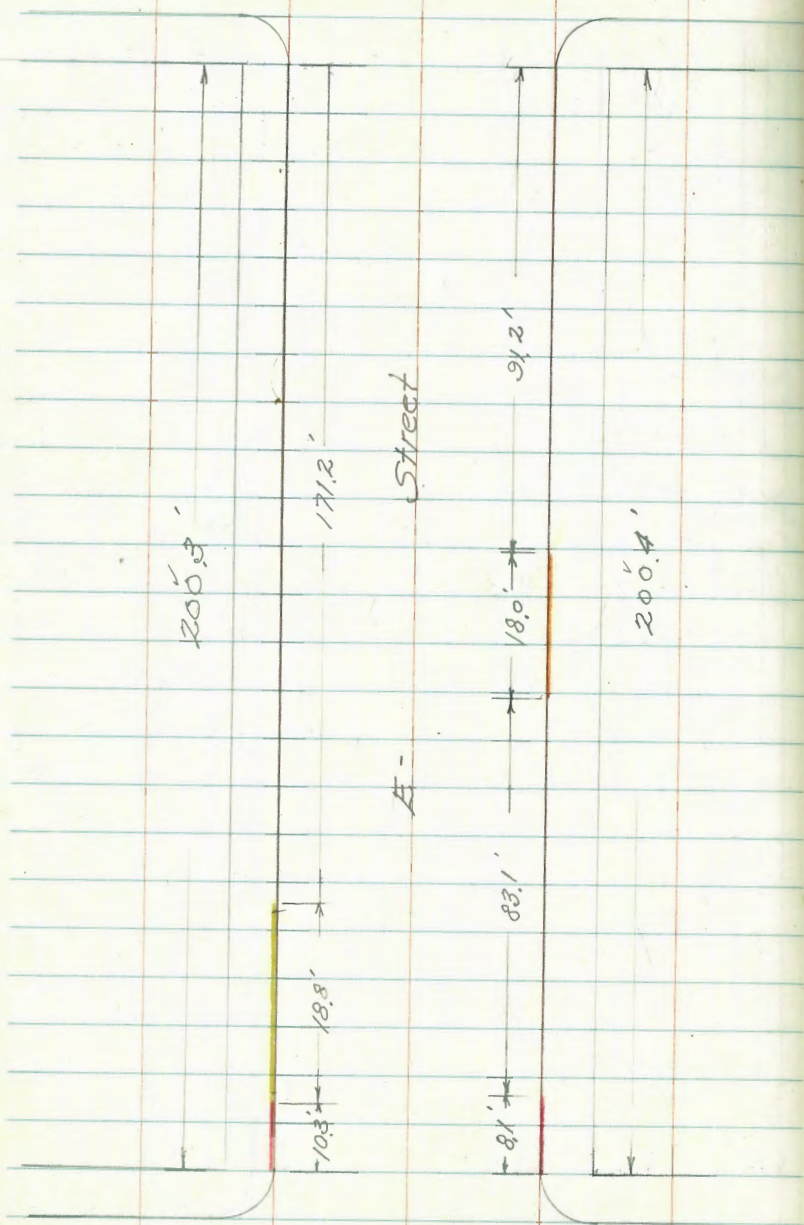 200.3'
171.2'
18.8'
10.3'
E - Street
91.2'
18.0'
83.1'
8.1'
200.4'